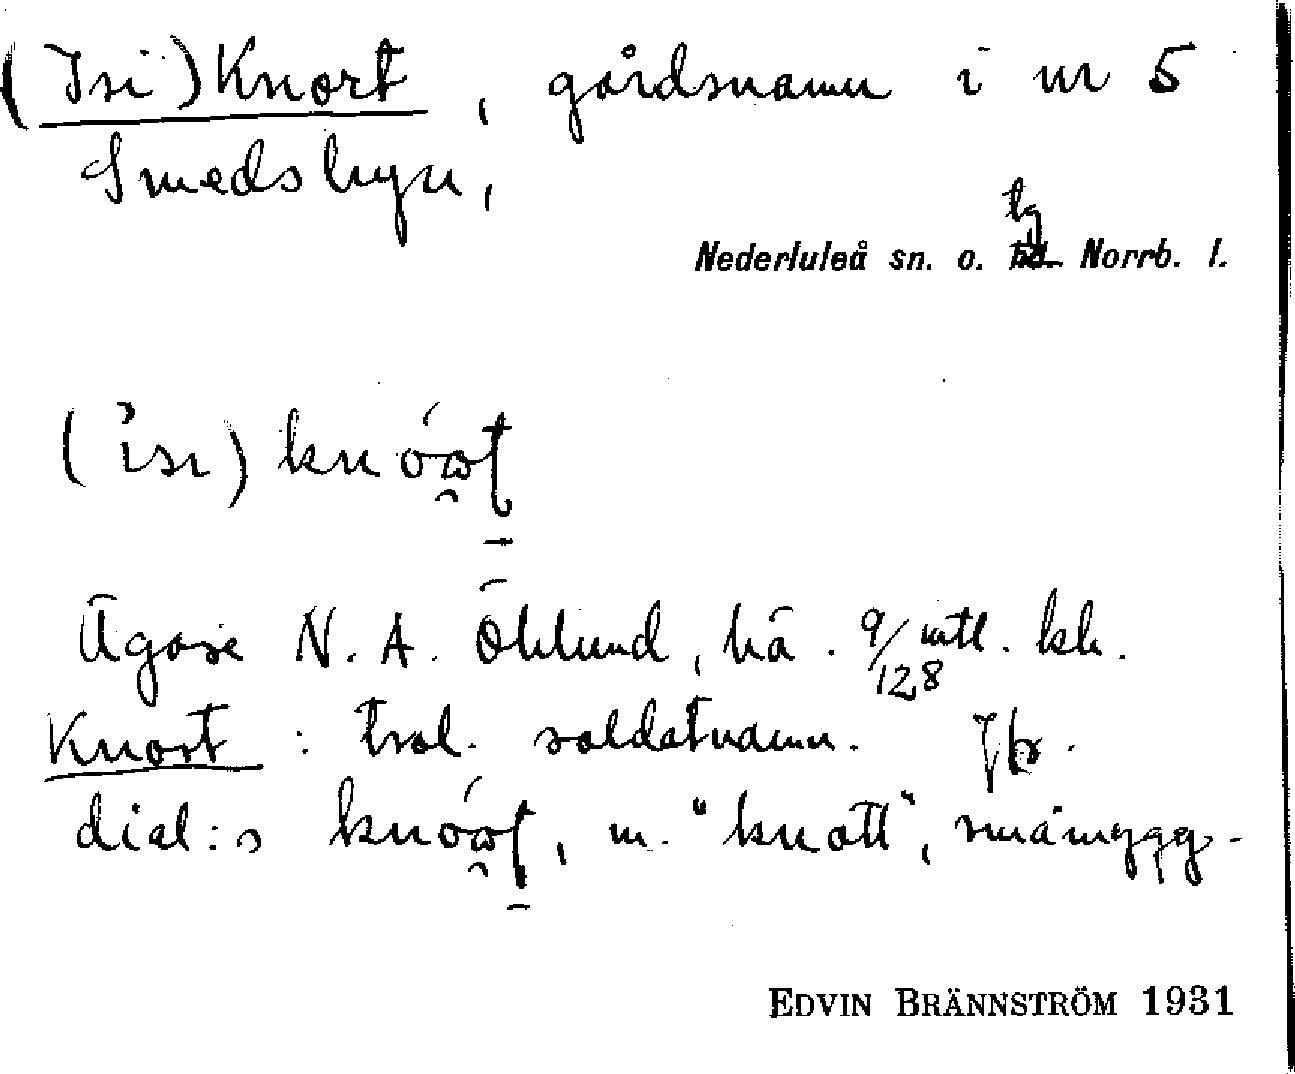 (Isi)Knort, gårdsnamn i nr 5
Smedsbyn,
tg
Nederluleå sn. o. Norrb. l.
(ìsı) knóωţ
Ägare N. A. Öhlund, hä. 9/128 mtl. kh.
Knort: trol. soldatnamn. Jfr.
dial:s knóωţ, m. "knott", småmygg-
EDVIN BRÄNNSTRÖM 1931